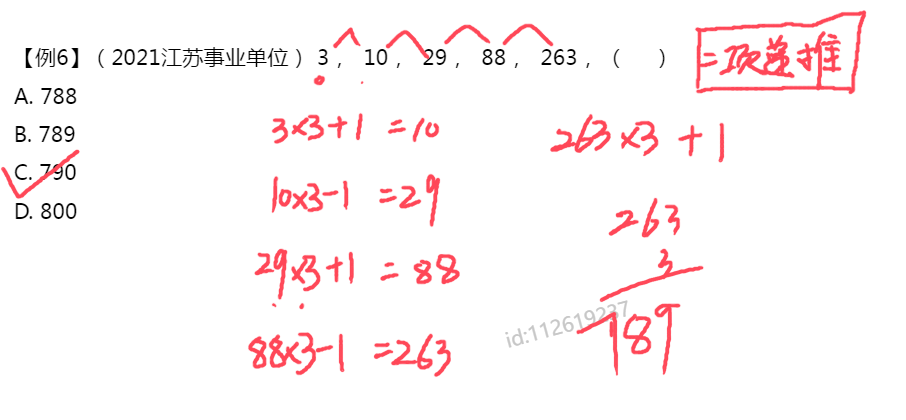 【例6】（2021江苏事业单位）3，10，29，88，263，（ ）
二项递推
A. 788
B. 789
C. 790
D. 800
3×3+1=10
10×3-1=29
29×3+1=88
88×3-1=263
263×3+1
263
3
789
id:112619237